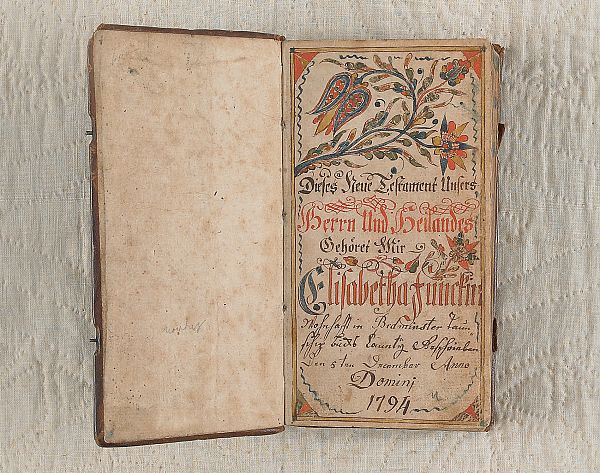 Dieses Neue Testament Unsers
Herrn Und Heilandes
Gehöret Mir
Elisabetha Funckin
Wohnhafft in Bedminster Taun„
schip Bucks County Geschrieben
den 5ten December Anno
Domini
1794